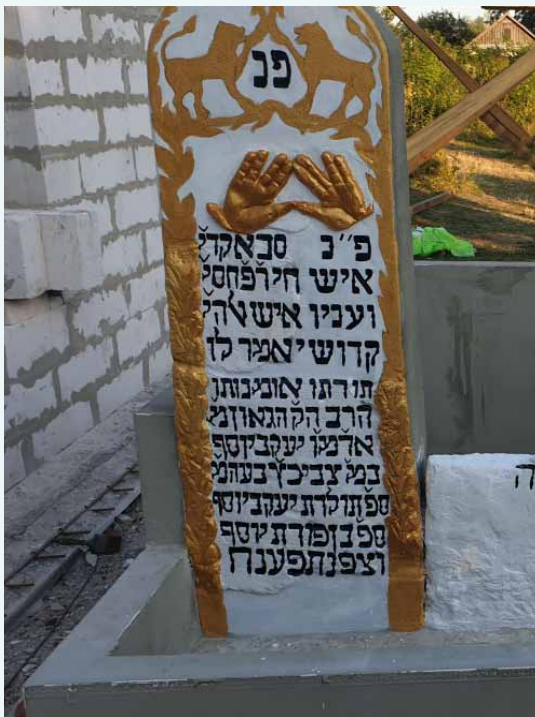 פנ
פ״נ סבאקדי
איש חי רפחסי
ועניו איש אהי
קדוש יאמר לו
תורתו אומנותו
הרב הק הגאון
אדמו יעקב יוסף
במ צבי כץ בעהמ
ספ תולדת יעקב יוסף
ספ בן פורת יוסף
וצפנת פענח
ה